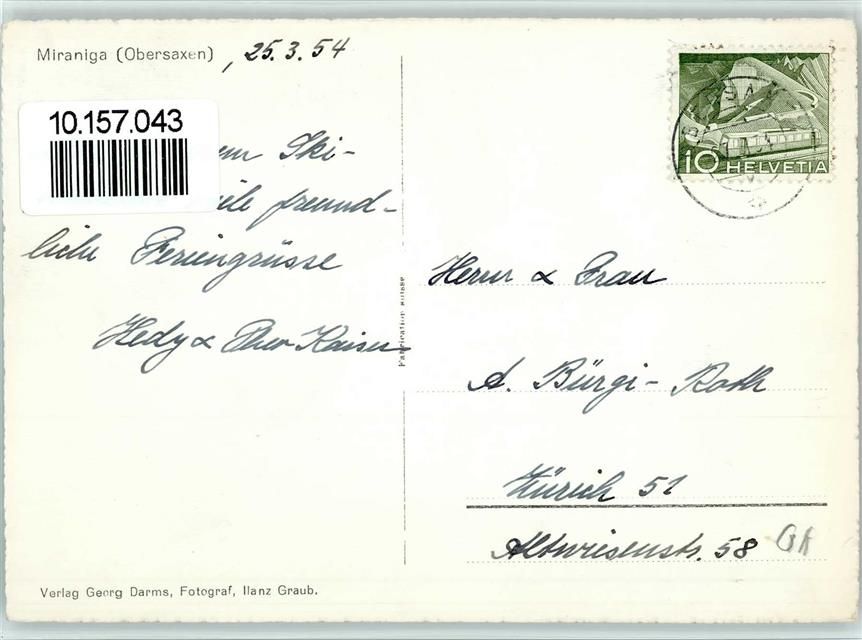 Miraniga (Obersaxen) , 25.3.54
10.157.043
Ski-
freund-
liche Feriengrüsse
Hedy & Theo Kaiser
Fabrication suisse
10 HELVETIA
Herrn & Frau
A. Bürgi-Roth
Zürich 51
Altwiesenstr. 58
Verlag Georg Darms, Fotograf, Ilanz Graub.